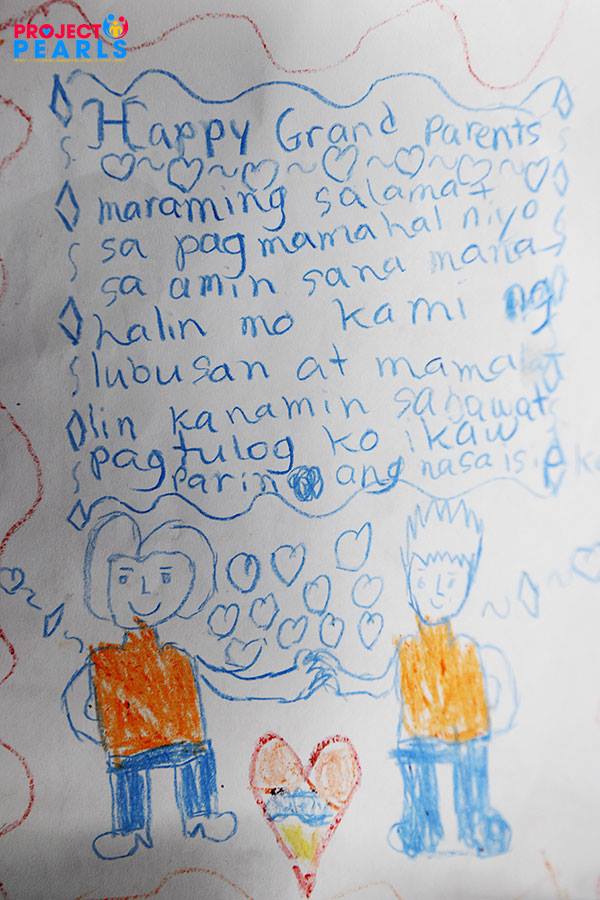 PROJECT
PEARLS
Happy Grand parents
maraming salamat
sa pagmamahal niyo
sa amin sana mama
halin mo kami ng
lubusan at mamala
lin kanamin sabawat
pagtulog ko ikaw
parin ang nasa is